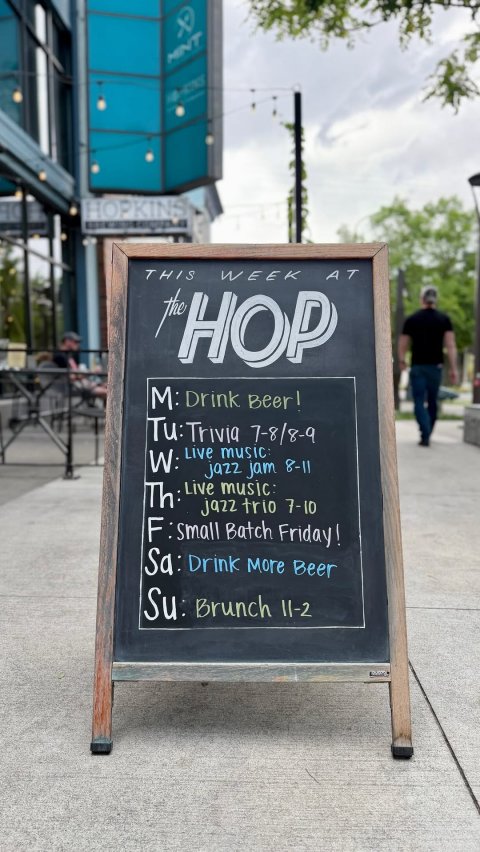 MINT
HOPKINS
THIS WEEK AT
the HOP
M: Drink Beer!
Tu: Trivia 7-8/8-9
W: Live music:
jazz jam 8-11
Th: Live music:
jazz trio 7-10
F: Small Batch Friday!
Sa: Drink More Beer
Su: Brunch 11-2